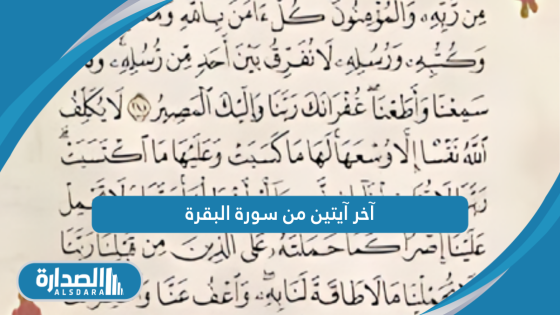 مِن رَّبِّهِۦ وَٱلْمُؤْمِنُونَ كُلٌّ ءَامَنَ بِٱللَّهِ
وَكُتُبِهِۦ وَرُسُلِهِۦ لَا نُفَرِّقُ بَيْنَ أَحَدٍ مِّن رُّسُلِهِۦ
سَمِعْنَا وَأَطَعْنَا غُفْرَانَكَ رَبَّنَا وَإِلَيْكَ ٱلْمَصِيرُ ٢٨٥ لَا يُكَلِّفُ
ٱللَّهُ نَفْسًا إِلَّا وُسْعَهَا لَهَا مَا كَسَبَتْ وَعَلَيْهَا مَا ٱكْتَسَبَتْ
آخر آيتين من سورة البقرة
عَلَيْنَآ إِصْرًا كَمَا حَمَلْتَهُۥ عَلَى ٱلَّذِينَ مِن قَبْلِنَا رَبَّنَا
مَا لَا طَاقَةَ لَنَا بِهِۦ وَٱعْفُ عَنَّا
الصدارة
ALSDARA